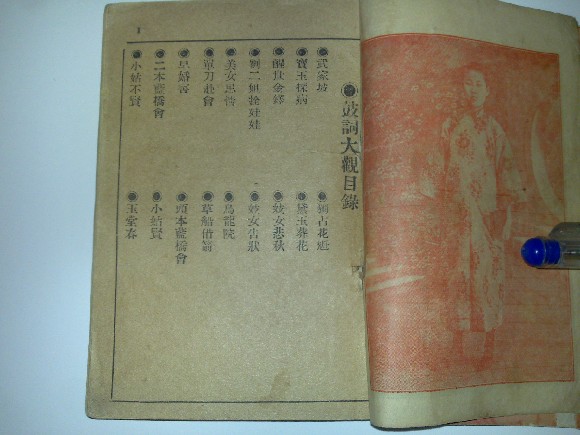 鼓詞大觀目錄
武家坡
獨占花魁
寶玉探病
黛玉葬花
醒世金鐸
妓女悲秋
劉二姐拴娃娃
妓女告狀
美女思情
烏龍院
單刀赴會
草船借箭
頭本藍橋會
二本藍橋會
小姑賢
小姑不賢
玉堂春